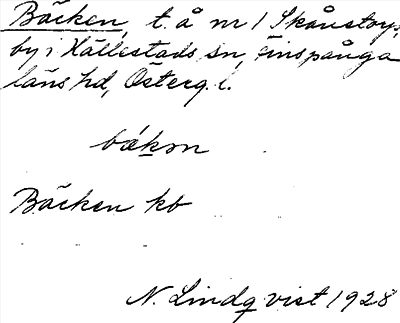 Bäcken, t. å nr 1 Skåustorp,
by i Hällestads sn, Finspånga
läns hd, Österg. l.
bäkən
Bäcken kb
N. Lindqvist 1928